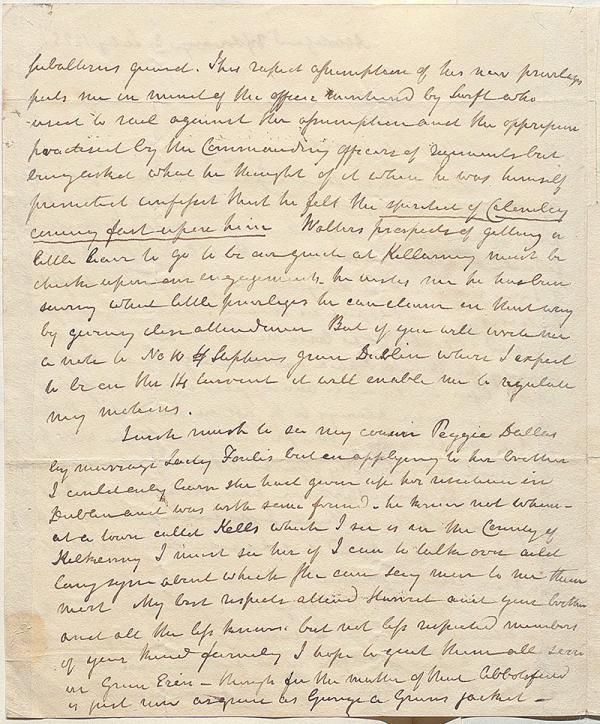 subalterns guard. This rapid assumption of his new privileges
puts me in mind of the officer mentioned by Swift who
used to rail against the assumption and the oppression
practised by the Commanding officers of regiments but
being asked what he thought of it when he was himself
promoted confessed that he felt the spirit of Colonelcy
coming fast upon him Walters prospects of getting a
little leave to go to be our guide at Killarney must be
upon our engagements he writes me he has been
saving what little privileges he can claim in that way
by giving close attendance But if you will write me
a note to No 10 St Stephens green Dublin where I expect
to be on the 14 current it will enable me to regulate
my motions.
I wish much to see my cousin Peggie Dallas
by marriage Lady Foulis but on applying to her brother
I could only learn she had given up her residence in
Dublin and was with some friend - he knew not where -
at a town called Kells which I see is in the County of
Kilkenny I must see her if I can to talk over auld
lang syne about which she can say more to me than
most My best respects attend Harriet and your brother
and all the less known but not less respected members
of your kind family I hope to greet them all soon
in Green Erin - though for the matter of that Abbotsford
is just now as green as George a Greens jacket -